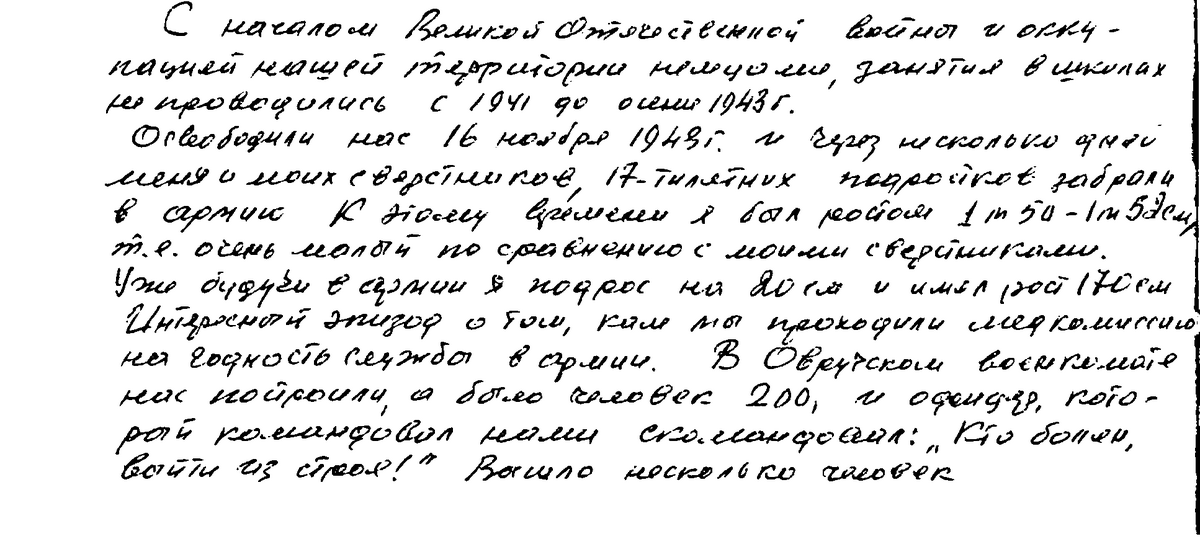 С началом Великой Отечественной войны и окку-
пацией нашей территории немцами, занятия в школах
не проводились с 1941 до осени 1943г.
Освободили нас 16 ноября 1943г. и через несколько дней
меня и моих сверстников, 17-тилетних подростков забрали
в армию К этому времени я был ростом 1м 50-1м 52см,
т.е. очень малый по сравнению с моими сверстниками.
Уже будучи в армии я подрос на 20см и имел рост 170см
Интересный эпизод о том, как мы проходили медкомиссию
на годность службы в армии. В Овручском военкомате
нас построили, а было человек 200, и офицер, кото-
рый командовал нами скомандовал: „Кто болен,
выйти из строя!" Вышло несколько человек